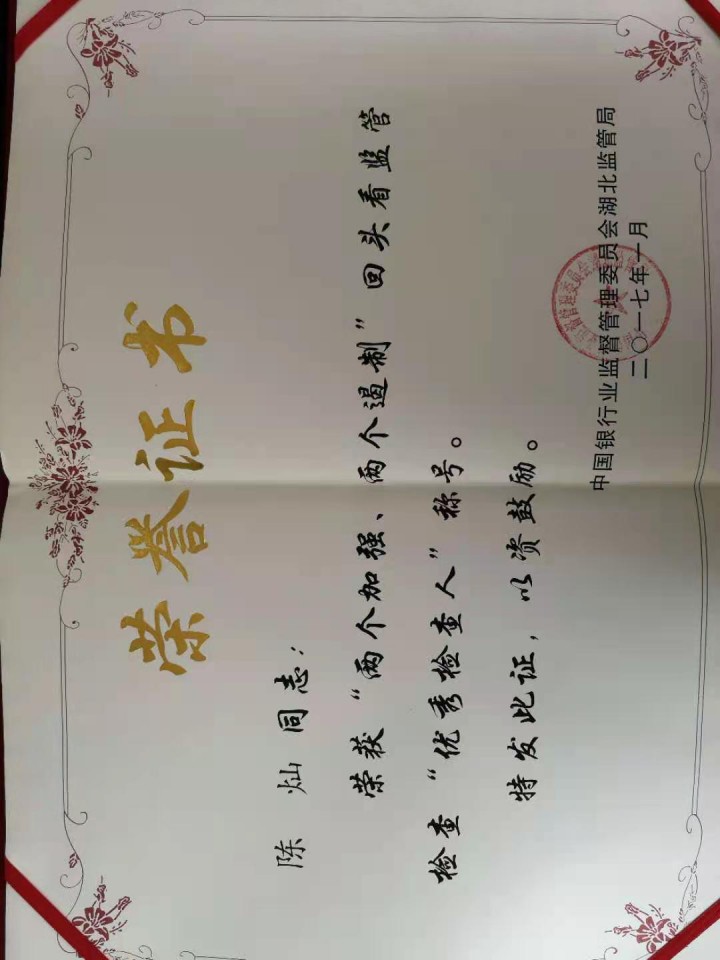 荣誉证书
陈灿同志：
荣获“两个加强、两个遏制”回头看监管
检查“优秀检查人”称号。
特发此证，以资鼓励。
中国银行业监督管理委员会湖北监管局
二〇一七年一月